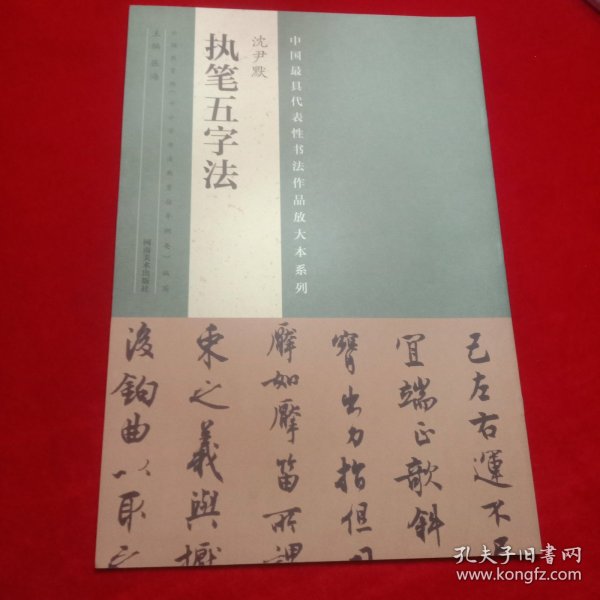 中国最具代表性书法作品放大本系列
沈尹默
执笔五字法
主编 张海
河南美术出版社
己左右運不
宜端正欹斜
實出力指但用
擪如擪笛所謂
東之義與擫
後鉤曲以取之
孔夫子旧书网
www.kongfz.com